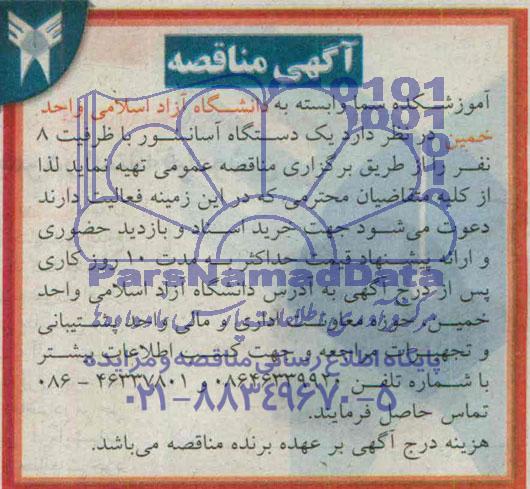 آگهی مناقصه
آموزشکده سما وابسته به دانشگاه آزاد اسلامی واحد
خمین در نظر دارد یک دستگاه آسانسور با ظرفیت ۸
نفر را از طریق برگزاری مناقصه عمومی تهیه نماید لذا
از کلیه متقاضیان محترمی که در این زمینه فعالیت دارند
دعوت می‌شود جهت خرید اسناد و بازدید حضوری
و ارائه پیشنهاد قیمت حداکثر به مدت ۱۰ روز کاری
پس از درج آگهی به آدرس دانشگاه آزاد اسلامی واحد
خمین، حوزه معاونت اداری و مالی واحد پشتیبانی
و تجهیزات مراجعه و جهت کسب اطلاعات بیشتر
با شماره تلفن ۰۸۶۴۶۳۳۹۹۲۰ و ۴۶۳۳۷۸۰۱ - ۰۸۶
تماس حاصل فرمایند.
هزینه درج آگهی بر عهده برنده مناقصه می‌باشد.
ParsNamadData
پایگاه اطلاع رسانی مناقصه و مزایده
۰۲۱-۸۸۳۴۹۶۷۰-۵